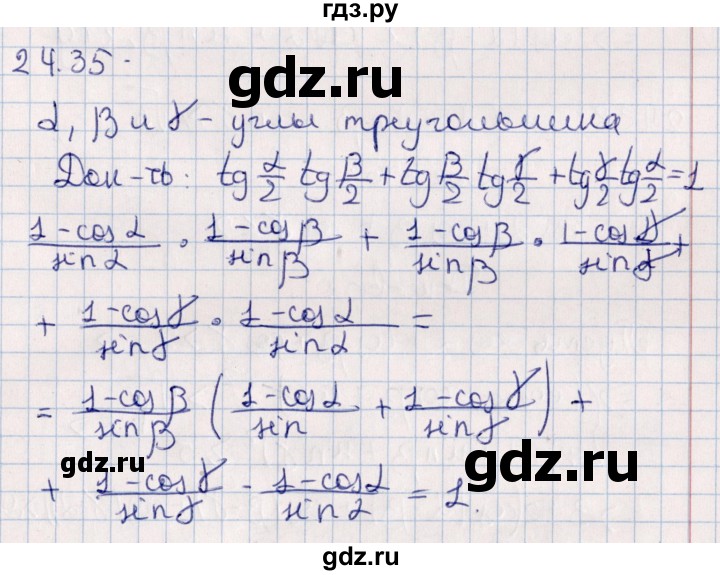 гдз.ру
24.35.
gdz.ru
α, β и γ - углы треугольника
Док-ть: tg α/2 tg β/2 + tg β/2 tg γ/2 + tg γ/2 tg α/2 = 1
(1-cos α)/(sin α) · (1-cos β)/(sin β) + (1-cos β)/(sin β) · (1-cos γ)/(sin γ) +
+ (1-cos γ)/(sin γ) · (1-cos α)/(sin α) =
gdz.ru
= (1-cos β)/(sin β) ( (1-cos α)/(sin) + (1-cos γ)/(sin γ) ) +
gdz.ru
gdz.ru
+ (1-cos γ)/(sin γ) - (1-cos α)/(sin α) = 1.
gdz.ru